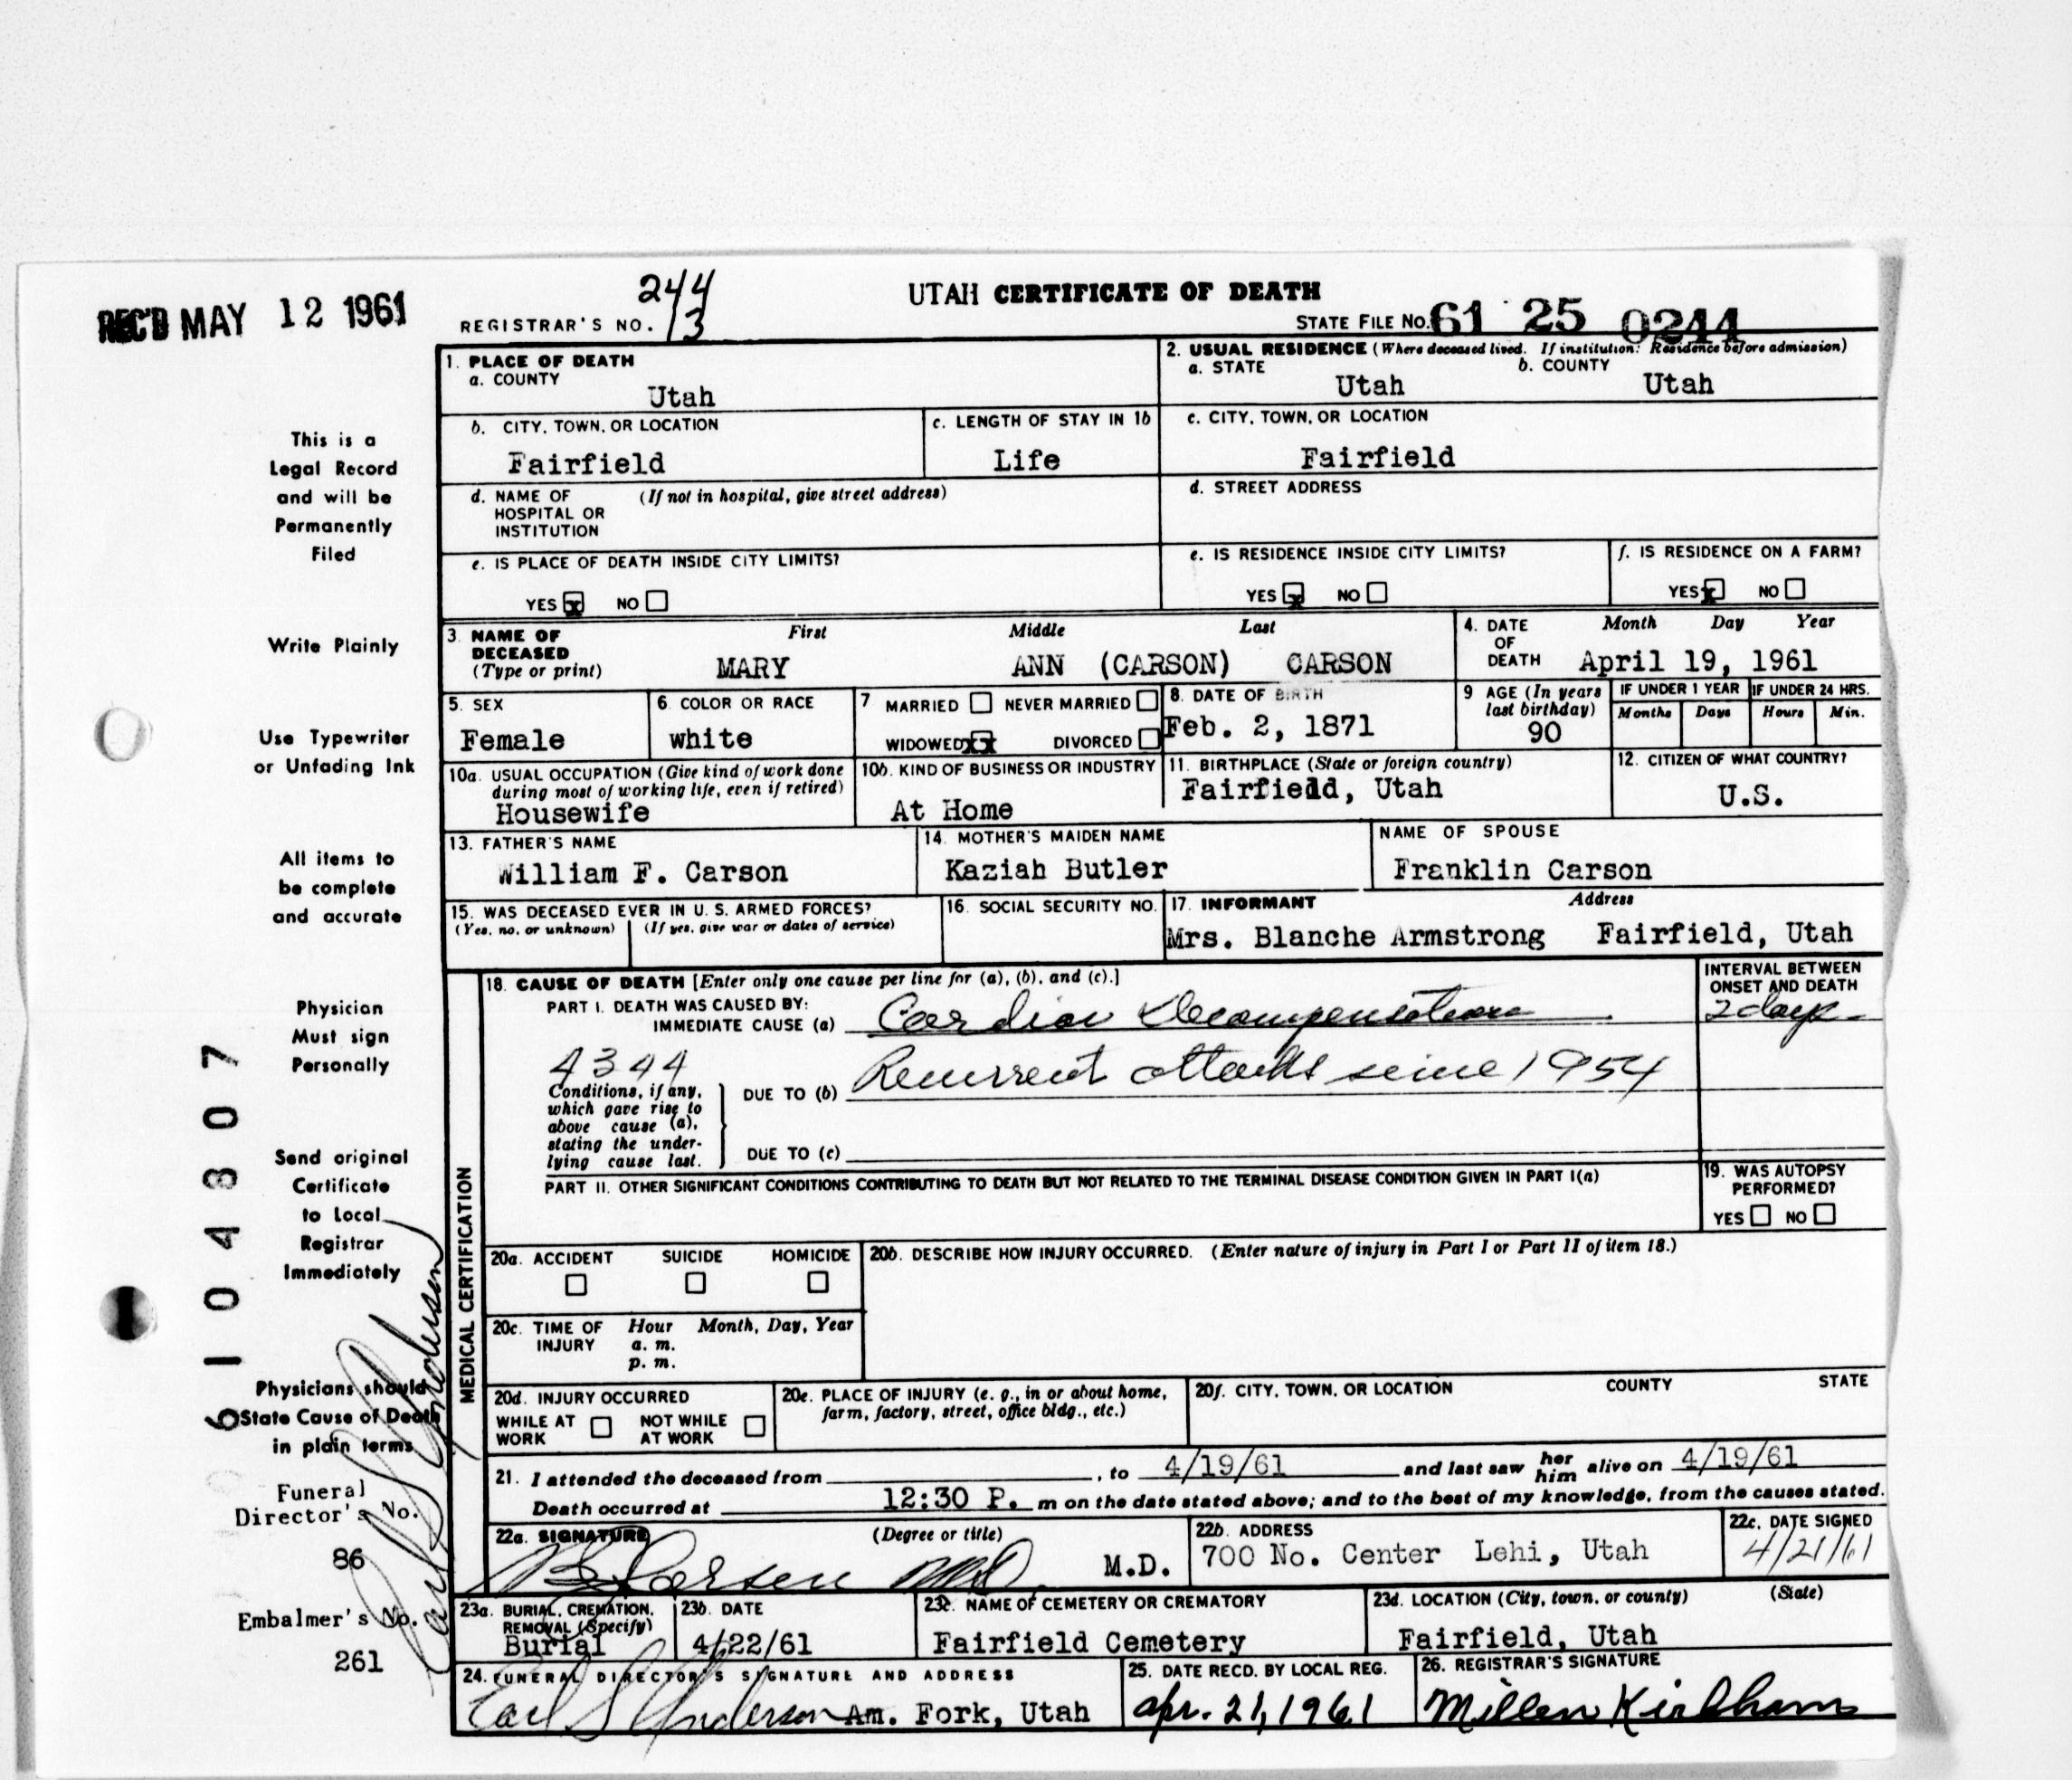 REC'D MAY 12 1961
244
UTAH CERTIFICATE OF DEATH
REGISTRAR'S NO. 13
STATE FILE NO. 61 25 0244
1. PLACE OF DEATH
a. COUNTY
Utah
2. USUAL RESIDENCE (Where deceased lived. If institution: Residence before admission)
a. STATE
Utah
b. COUNTY
Utah
b. CITY, TOWN, OR LOCATION
Fairfield
c. LENGTH OF STAY IN 1b
Life
c. CITY, TOWN, OR LOCATION
Fairfield
d. NAME OF HOSPITAL OR INSTITUTION
(If not in hospital, give street address)
d. STREET ADDRESS
e. IS PLACE OF DEATH INSIDE CITY LIMITS?
YES x NO
e. IS RESIDENCE INSIDE CITY LIMITS?
YES x NO
f. IS RESIDENCE ON A FARM?
YES x NO
3. NAME OF DECEASED
(Type or print)
First Middle Last
MARY ANN (CARSON) CARSON
4. DATE OF DEATH
Month Day Year
April 19, 1961
5. SEX
Female
6. COLOR OR RACE
white
7 MARRIED NEVER MARRIED
WIDOWED XX DIVORCED
8. DATE OF BIRTH
Feb. 2, 1871
9 AGE (In years last birthday)
90
IF UNDER 1 YEAR
Months Days
IF UNDER 24 HRS.
Hours Min.
10a. USUAL OCCUPATION (Give kind of work done during most of working life, even if retired)
Housewife
10b. KIND OF BUSINESS OR INDUSTRY
At Home
11. BIRTHPLACE (State or foreign country)
Fairfield, Utah
12. CITIZEN OF WHAT COUNTRY?
U.S.
13. FATHER'S NAME
William F. Carson
14. MOTHER'S MAIDEN NAME
Kaziah Butler
NAME OF SPOUSE
Franklin Carson
15. WAS DECEASED EVER IN U. S. ARMED FORCES?
(Yes, no, or unknown) (If yes, give war or dates of service)
16. SOCIAL SECURITY NO.
17. INFORMANT Address
Mrs. Blanche Armstrong Fairfield, Utah
MEDICAL CERTIFICATION
18. CAUSE OF DEATH [Enter only one cause per line for (a), (b), and (c).]
PART I. DEATH WAS CAUSED BY:
IMMEDIATE CAUSE (a) Cardiac Decompensation
INTERVAL BETWEEN ONSET AND DEATH
2 days
4344
Conditions, if any, which gave rise to above cause (a), stating the underlying cause last.
DUE TO (b) Recurrent attacks since 1954
DUE TO (c)
PART II. OTHER SIGNIFICANT CONDITIONS CONTRIBUTING TO DEATH BUT NOT RELATED TO THE TERMINAL DISEASE CONDITION GIVEN IN PART I(a)
19. WAS AUTOPSY PERFORMED?
YES NO
20a. ACCIDENT SUICIDE HOMICIDE
20b. DESCRIBE HOW INJURY OCCURRED. (Enter nature of injury in Part I or Part II of item 18.)
20c. TIME OF INJURY
Hour Month, Day, Year
a. m.
p. m.
20d. INJURY OCCURRED
WHILE AT WORK NOT WHILE AT WORK
20e. PLACE OF INJURY (e. g., in or about home, farm, factory, street, office bldg., etc.)
20f. CITY, TOWN, OR LOCATION COUNTY STATE
21. I attended the deceased from , to 4/19/61 and last saw her him alive on 4/19/61
Death occurred at 12:30 P. m on the date stated above; and to the best of my knowledge, from the causes stated.
22a. SIGNATURE (Degree or title)
Larsen MD. M.D.
22b. ADDRESS
700 No. Center Lehi, Utah
22c. DATE SIGNED
4/21/61
23a. BURIAL, CREMATION, REMOVAL (Specify)
Burial
23b. DATE
4/22/61
23c. NAME OF CEMETERY OR CREMATORY
Fairfield Cemetery
23d. LOCATION (City, town, or county) (State)
Fairfield, Utah
24. FUNERAL DIRECTOR'S SIGNATURE AND ADDRESS
Earl S Anderson Am. Fork, Utah
25. DATE RECD. BY LOCAL REG.
Apr. 21, 1961
26. REGISTRAR'S SIGNATURE
Millen Kirkham
This is a
Legal Record
and will be
Permanently
Filed
Write Plainly
Use Typewriter
or Unfading Ink
All items to
be complete
and accurate
Physician
Must sign
Personally
Send original
Certificate
to Local
Registrar
Immediately
Physicians should
State Cause of Death
in plain terms
Funeral
Director's No.
86
Embalmer's No.
261
Earl S Anderson
6104307